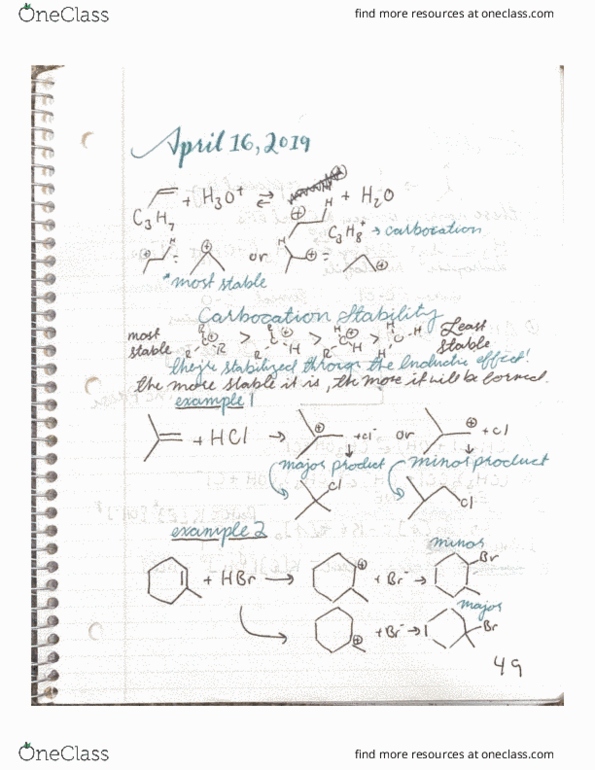 OneClass
find more resources at oneclass.com
April 16, 2019
+ H3O+ ⇌ + H2O
C3H7
H
C3H8+ → carbocation
H = or H =
*most stable
Carbocation Stability
most stable > > > Least Stable
they're stabilized through the Inductive effect!
the more stable it is, the more it will be formed.
example 1
+ HCl → + Cl- or + Cl
major product minor product
Cl Cl
example 2
minor
+ HBr → + Br- → Br
major
+ Br- → Br
49
OneClass
find more resources at oneclass.com